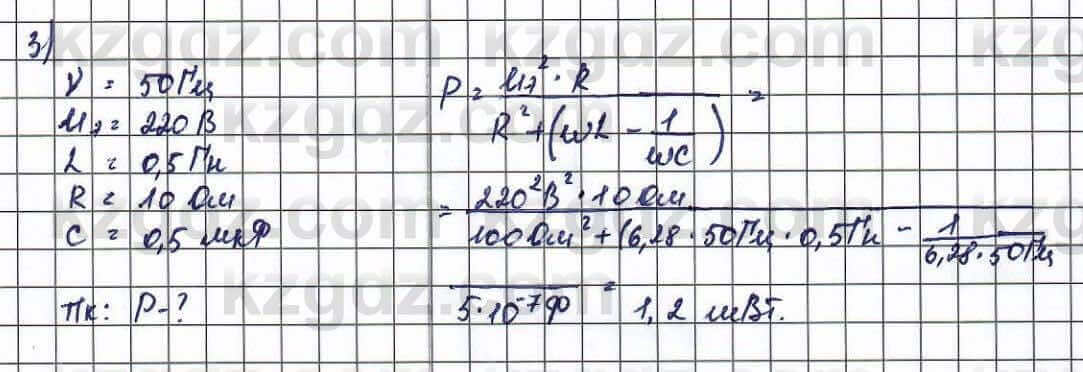 3)
ν = 50 Гц
Uэ = 220 В
L = 0,5 Гн
R = 10 Ом
C = 0,5 мкФ
Тк: P-?
P = Uэ² · R / R² + (ωL - 1/ωC) =
= 220² В² · 10 Ом / 100 Ом² + (6,28 · 50 Гц · 0,5 Гн - 1 / 6,28 · 50 Гц
5·10⁻⁷ Ф = 1,2 мВт.
kzgdz.com